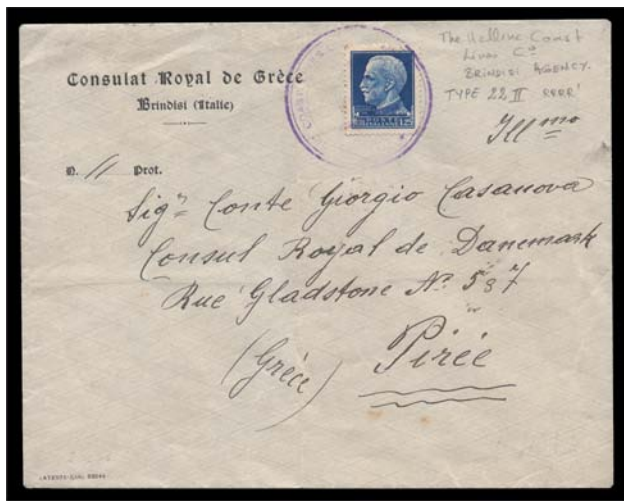 Consulat Royal de Grèce
Brindisi (Italie)
The Hellenic Coast
Lines Cº
BRINDISI AGENCY.
TYPE 22 II RRRR!
Illmo
N. 11 Prot.
Sigr Conte Giorgio Casanova
Consul Royal de Danemark
Rue Gladstone Nº 587
(Grèce) Pirée